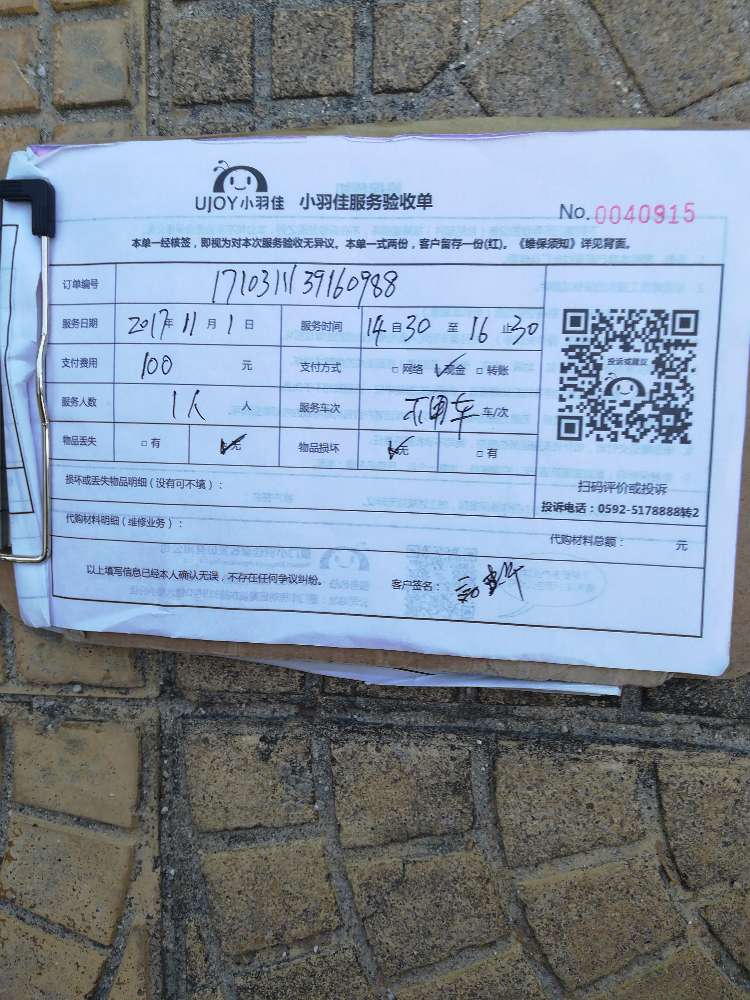 UJOY小羽佳 小羽佳服务验收单
No. 0040915
本单一经核签，即视为对本次服务验收无异议。本单一式两份，客户留存一份(红)。《维保须知》详见背面。
订单编号 1710311139160988
服务日期 2017年 11月 1日 服务时间 14自30 至 16止30
支付费用 100 元 支付方式 □网络 ✓现金 □转账
服务人数 1人 人 服务车次 不用车 车/次
物品丢失 □有 ✓无 物品损坏 ✓无 □有
投诉或建议
扫码评价或投诉
投诉电话：0592-5178888转2
损坏或丢失物品明细（没有可不填）：
代购材料明细（维修业务）：
代购材料总额： 元
以上填写信息已经本人确认无误，不存在任何争议纠纷。 客户签名：